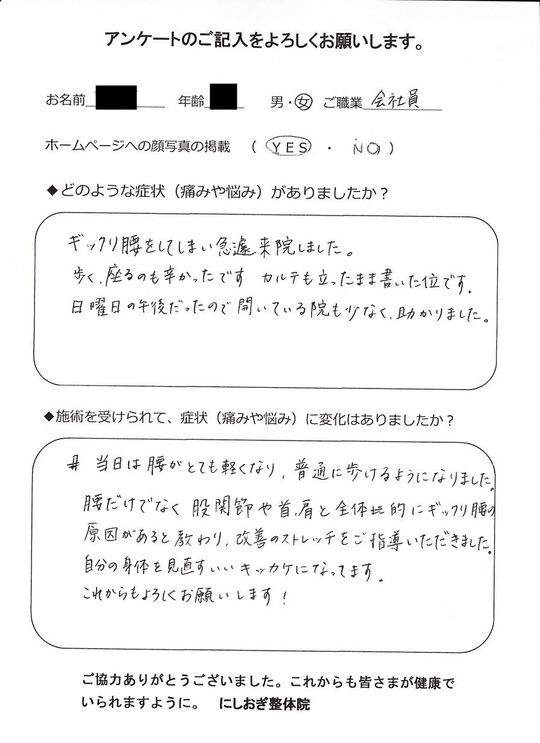 アンケートのご記入をよろしくお願いします。
お名前 年齢 男・女 ご職業 会社員
ホームページへの顔写真の掲載 ( YES ・ NO )
◆どのような症状(痛みや悩み)がありましたか?
ギックリ腰をしてしまい急遽来院しました。
歩く、座るのも辛かったです カルテも立ったまま書いた位です。
日曜日の午後だったので開いている院も少なく、助かりました。
◆施術を受けられて、症状(痛みや悩み)に変化はありましたか?
当日は腰がとても軽くなり、普通に歩けるようになりました。
腰だけでなく股関節や首、肩と全体的にギックリ腰の
原因があると教わり、改善のストレッチをご指導いただきました。
自分の身体を見直すいいキッカケになってます。
これからもよろしくお願いします!
ご協力ありがとうございました。これからも皆さまが健康で
いられますように。 にしおぎ整体院